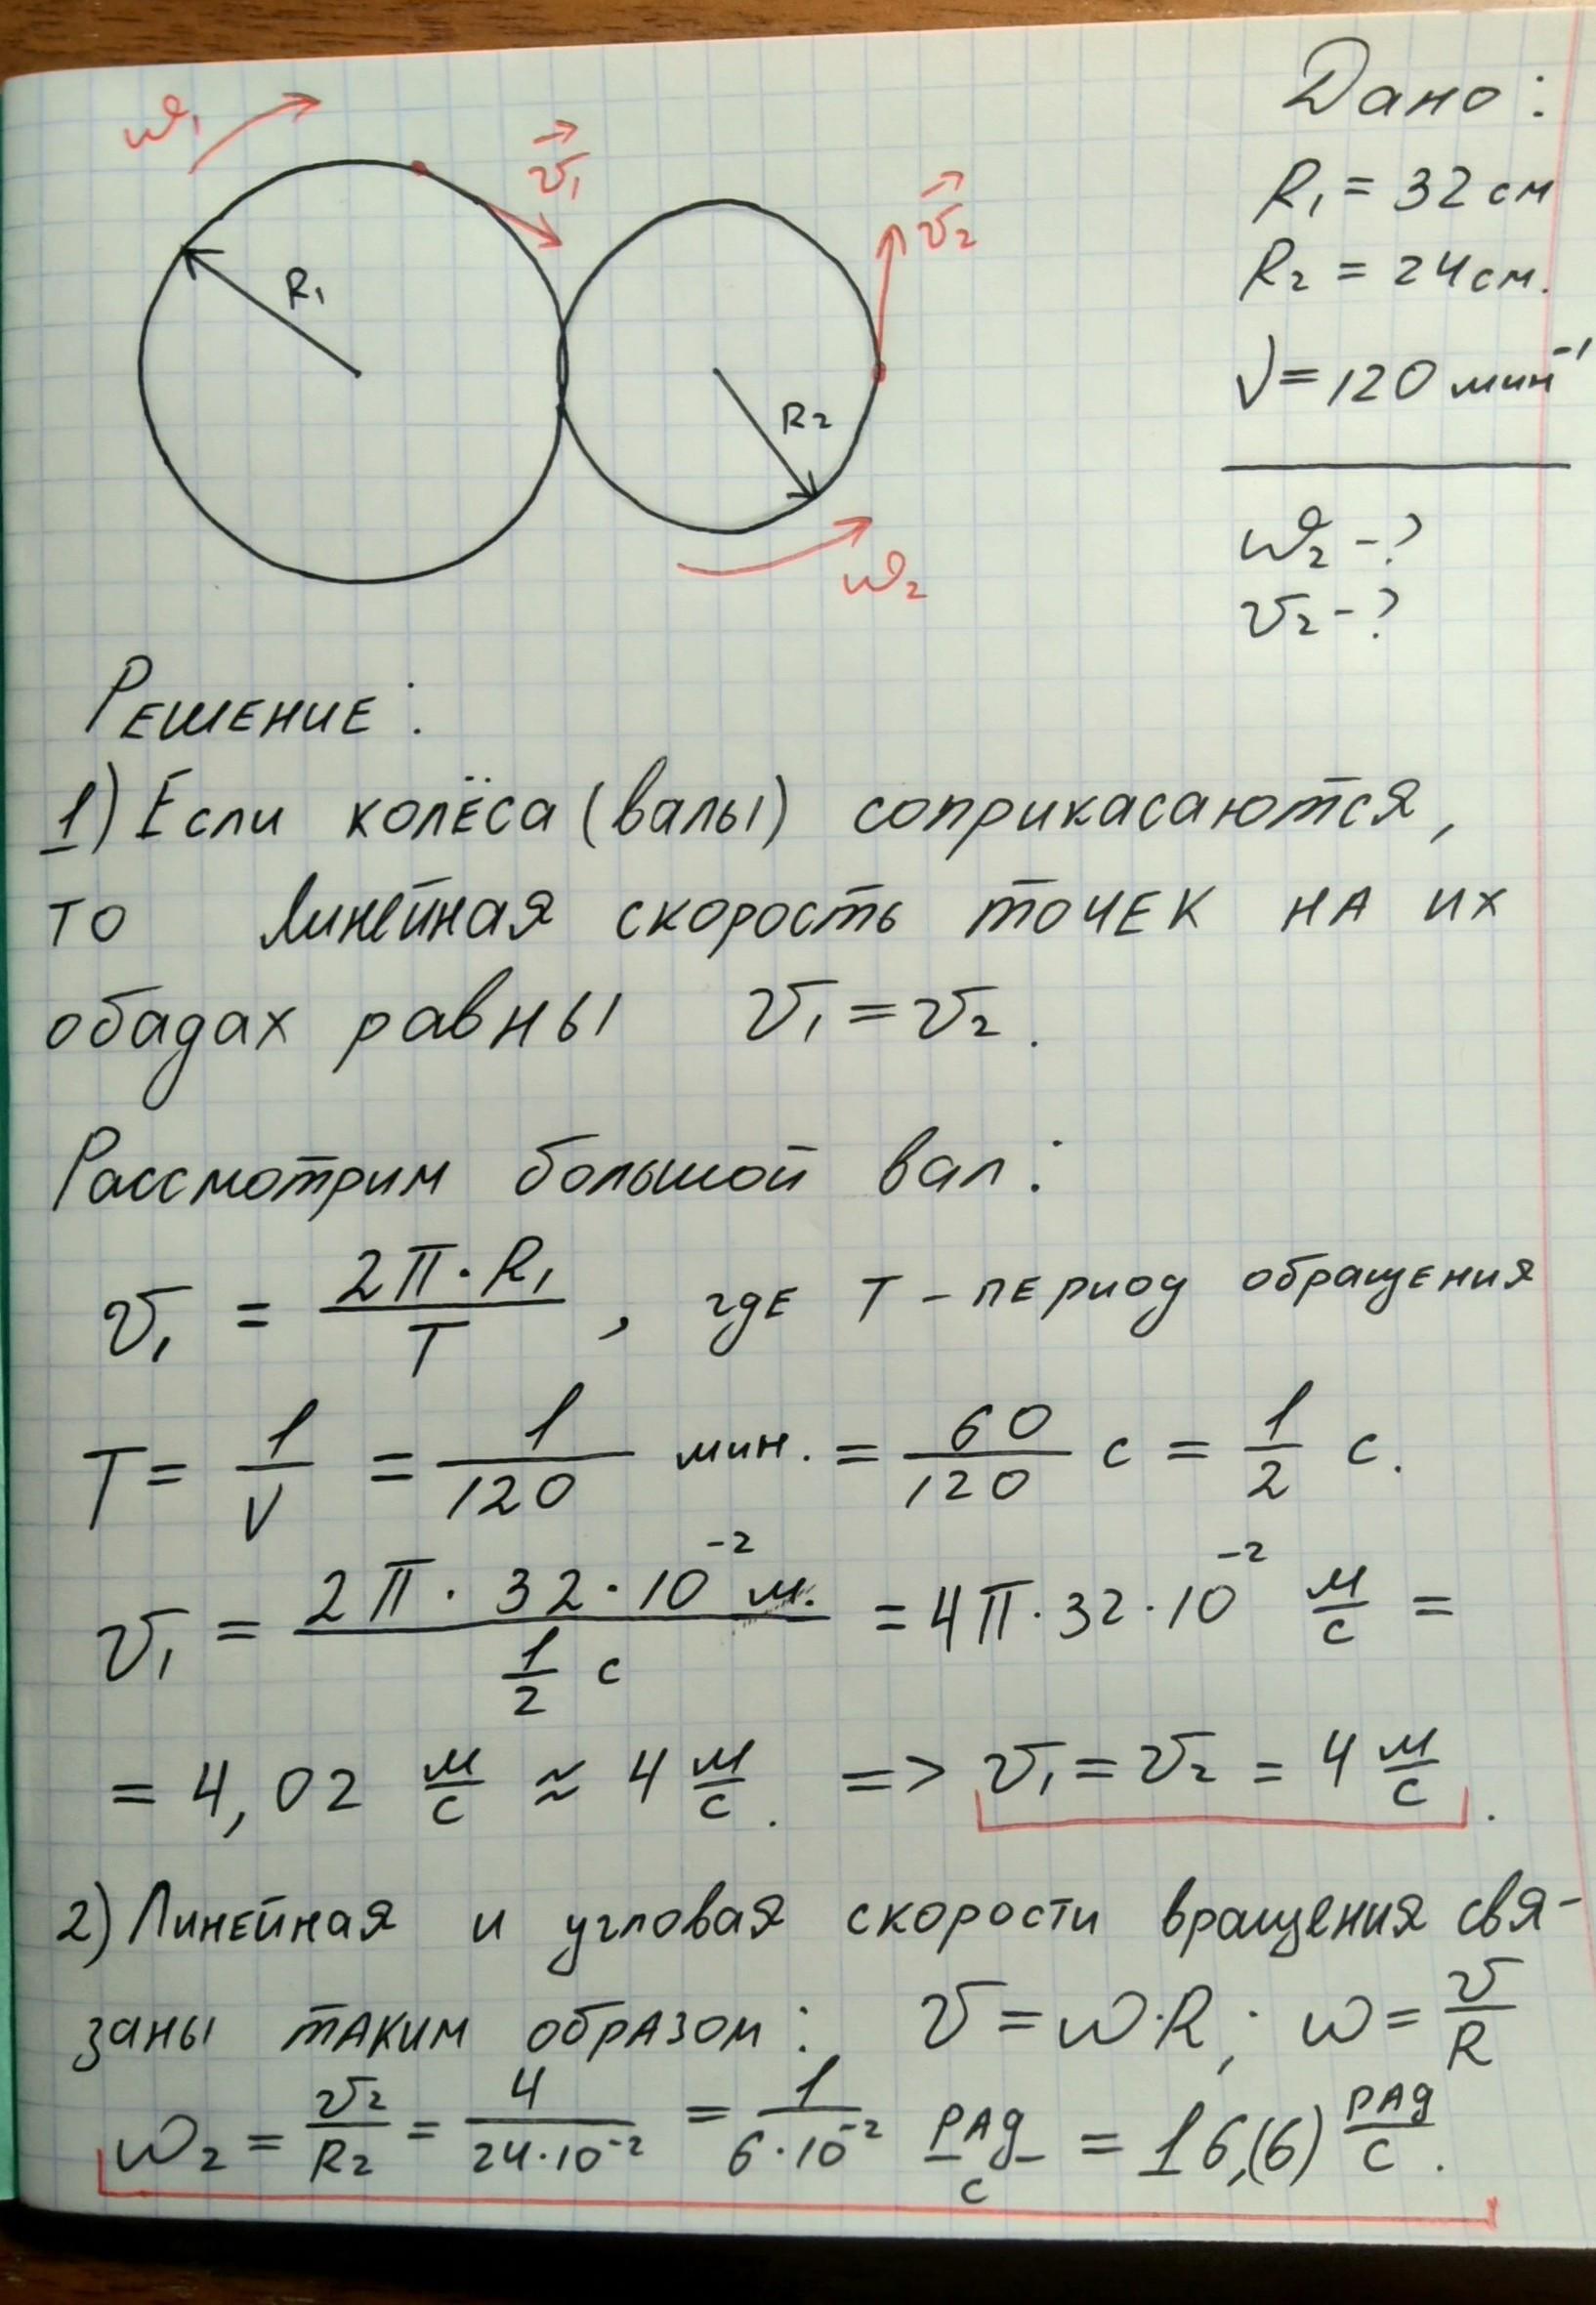 ω₁
v⃗₁
v⃗₂
R₁
R₂
ω₂
Дано:
R₁ = 32 см
R₂ = 24 см.
ν = 120 мин⁻¹
ω₂ - ?
v₂ - ?
Решение:
1) Если колёса (валы) соприкасаются,
то линейная скорость точек на их
обадах равны v₁ = v₂.
Рассмотрим большой вал:
v₁ = 2π·R₁/T, где T - период обращения
T = 1/ν = 1/120 мин. = 60/120 с = 1/2 с.
v₁ = 2π · 32 · 10⁻² м. / 1/2 с = 4π · 32 · 10⁻² м/с =
= 4,02 м/с ≈ 4 м/с. => v₁ = v₂ = 4 м/с.
2) Линейная и угловая скорости вращения свя-
заны таким образом: v = ω·R; ω = v/R
ω₂ = v₂/R₂ = 4/24·10⁻² = 1/6·10⁻² рад/с = 16,(6) рад/с.